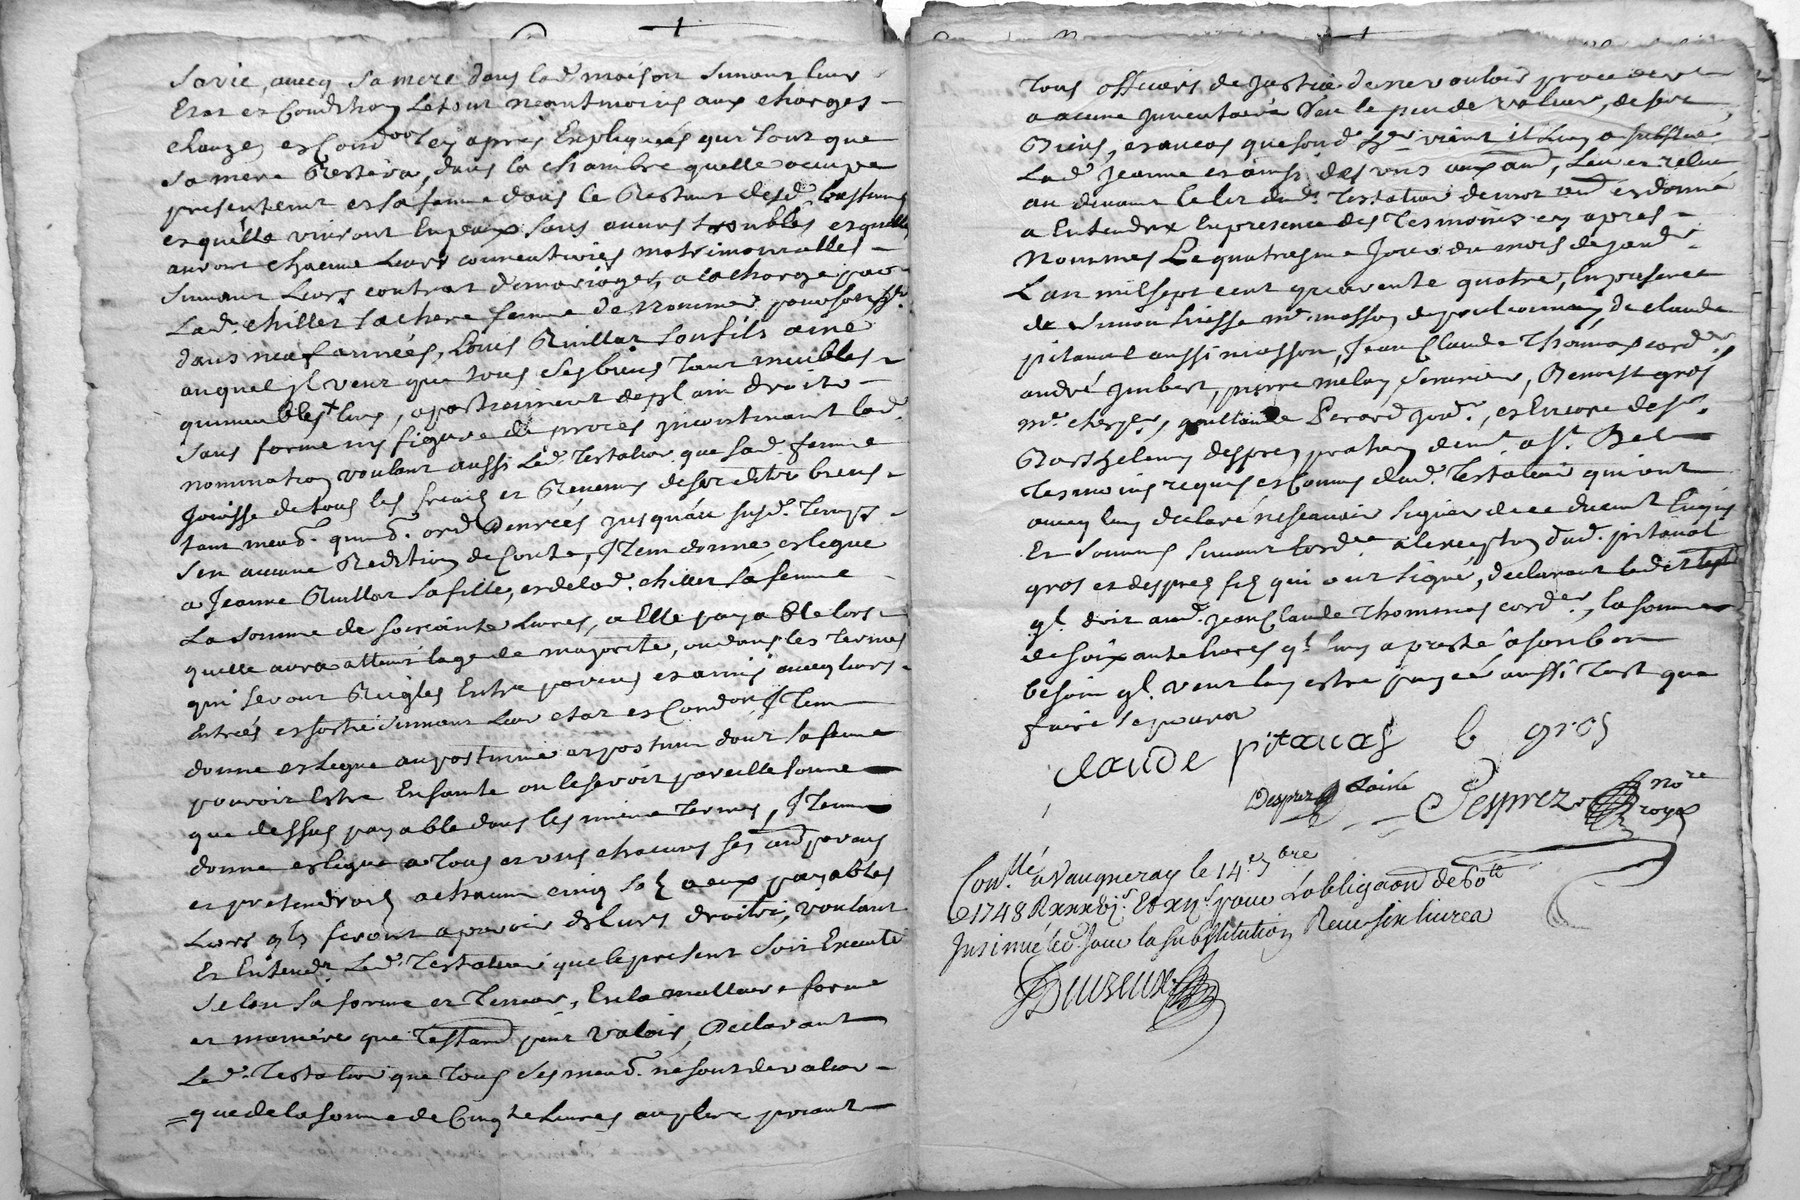 Sa vie, avecq Sa mere dans lad. maison Suivant leur
Etat et Condition Letout neantmoins aux charges
clauzes et Condōons cy apres Expliqueés qui sont que
Sa mere Restera, dans la chambre quelle occupe
presentemt et Sa femme dans le Restant desd. bastimens
et quelle vivront En paix Sans aucuns troubles et quelles
auront chacune Leurs conventions matrimonialles
Suivant Leurs contrat de mariages, a la charge par
Lad. chillet Sachere femme de nommer pour son her.
dans neuf années, Louis Guillot Son fils ainé
auquel yl veut que tous Ses biens tant meubles
quimmeubles luy, apartiennent deplain droit
Sans forme ny figure de proces incontinant lad.
nomination voulant aussi Led. Testateur que Sad. femme
Jouisse de tous les fruits et Revenus de Ses dits biens
tant meub. quimb. ord. Denreés jusquau susd. Temps
Sen aucune Redition de Conte, Jtem donne et legue
a Jeanne Guillot Sa fille, et de lad. chillet Sa femme
La Somme de Soixante Livres, a Elle payable lors
quelle aura atteint lage de majorité, ou dans les Termes
qui Seront Reigles Entre parens et amis avecq leurs
Entreés et sortie Suivant Leur etat et Condōon, Jtem
donne et Legue au postume et postum dont Sa femme
pouroit Estre Enceinte ou le Seroit pareille Somme
que dessus payable dans les mème Termes, Jtem
donne et legue a Tous et uns chacuns Ses aud. parans
et pretendroits a chacun cinq Sols a eux payables
Lors qls feront aparoir de leurs droits, voulant
Et Entend Led. Testateur que le present Soit Executé
Selon Sa forme et Teneur, En la meilleure forme
et maniere que Testam peut valoir, Declarant
Led. Testateur que Tous Ses meub. ne sont de valeur
que de la Somme de Cinqte Livres au plus priant
Tous officiers de Justice de ne vouloir proceder
a aucune Jnventaire Veu le peu de valeur, de ses
Biens, et au cas que sond. her. vient il luy a substitué
Lad. Jeanne et ainsi des uns aux aud., Leu et relue
au devant le lit dud. Testateur de mot a mot et donné
a Entendre En presence des Tesmoins cy apres
Nommés Le quatresme Jour du mois de
Lan mil sept cent quarente quatre, En presence
de Simon Suisse me. masson de
pitaval aussi masson, Jean Claude Thomas cord.
andré Jmbert, pierre melay Serurier, Benoist gros
me. chergr, guillaume Berard, et Encore de Sr.
Barthelemy desprez praticien
Tesmoins requis et Connus dud. Testateur qui ont
avecq luy declaré ne Scavoir Signer de ce duemt Enquis
Et Sommés Suivant lordce a lexeption dud. pitaval
gros et desprez fils qui ont Signé, declarant led. Test
ql doit aud. Jean Claude Thommas corder, la Somme
de Soixante livres ql luy a presté a Son bon
besoin ql veut luy estre payeé aussi Tost que
faire Se poura
claude pitaval b gros
Desprez Lainé Desprez nore royal
Conllé a Vaugneray le 14e 7bre
1748 R xxxvj s. Et xij s. pour Lobligāon de 60ll
Jnsinué led. Jour la Substitution Receu Six livres